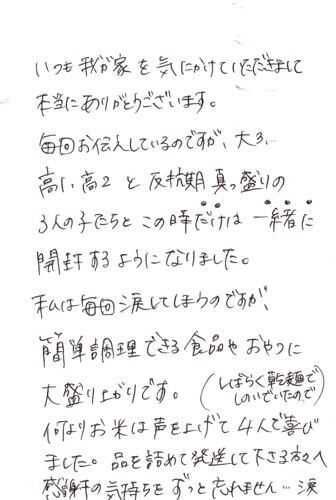 いつも我が家を気にかけていただきまして
本当にありがとうございます。
毎回お伝えしているのですが、大3、
高1、高2と反抗期真っ盛りの
3人の子たちとこの時だけは一緒に
開封するようになりました。
私は毎回涙してしまうのですが、
簡単調理できる食品やおやつに
大盛り上がりです。(しばらく乾麺で
しのいでいたので)
何よりお米は声を上げて4人で喜び
ました。品を詰めて発送して下さる方々へ
感謝の気持ちをずっと忘れません…涙